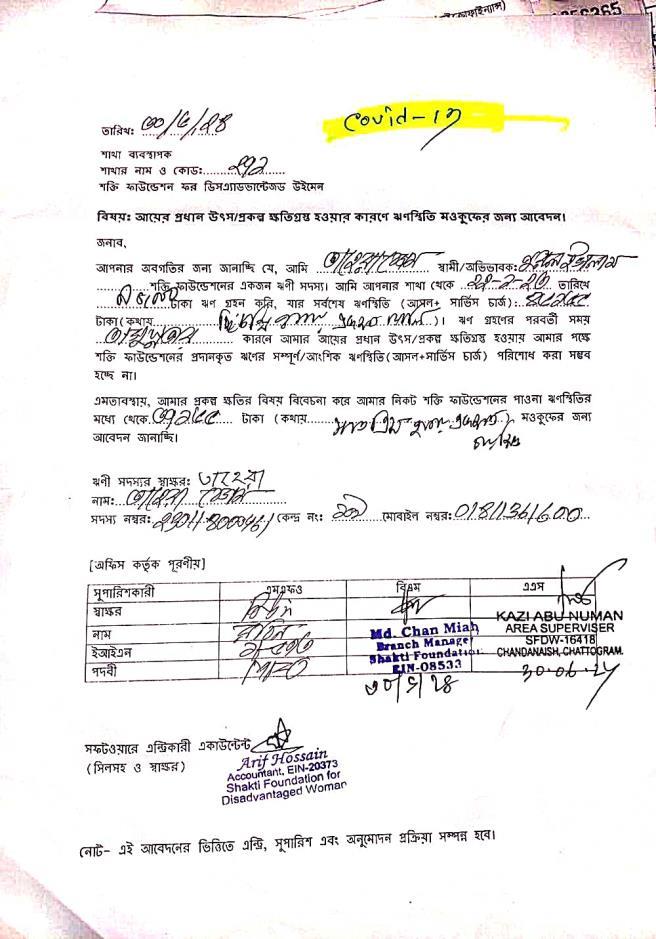 Covid-19
তারিখ: ৩০/৬/২৪
শাখা ব্যবস্থাপক
শাখার নাম ও কোড: ২৭২
শক্তি ফাউন্ডেশন ফর ডিসএ্যাডভান্টেজড উইমেন
বিষয়: আয়ের প্রধান উৎস/প্রকল্প ক্ষতিগ্রস্থ হওয়ার কারণে ঋণস্থিতি মওকুফের জন্য আবেদন।
জনাব,
আপনার অবগতির জন্য জানাচ্ছি যে, আমি তাহেরা বেগম স্বামী/অভিভাবক: ইসলাম
শক্তি ফাউন্ডেশনের একজন ঋণী সদস্য। আমি আপনার শাখা থেকে তারিখে
টাকা ঋণ গ্রহন করি, যার সর্বশেষ ঋণস্থিতি (আসল+ সার্ভিস চার্জ):
টাকা(কথায় )। ঋণ গ্রহণের পরবর্তী সময়
কারনে আমার আয়ের প্রধান উৎস/প্রকল্প ক্ষতিগ্রস্ত হওয়ায় আমার পক্ষে
শক্তি ফাউন্ডেশনের প্রদানকৃত ঋণের সম্পূর্ণ/আংশিক ঋণস্থিতি(আসল+সার্ভিস চার্জ) পরিশোধ করা সম্ভব
হচ্ছে না।
এমতাবস্থায়, আমার প্রকল্প ক্ষতির বিষয় বিবেচনা করে আমার নিকট শক্তি ফাউন্ডেশনের পাওনা ঋণস্থিতির
মধ্যে থেকে টাকা (কথায় ) মওকুফের জন্য
আবেদন জানাচ্ছি।
ঋণী সদস্যর স্বাক্ষর: তাহেরা
নাম: তাহেরা বেগম
সদস্য নম্বর: (কেন্দ্র নং: মোবাইল নম্বর: 01811361600
[অফিস কর্তৃক পূরণীয়]
সুপারিশকারী এমএফও বিএম এএস
স্বাক্ষর
নাম
ইআইএন
পদবী MFO
Md. Chan Miah
Branch Manager
Shakti Foundation
EIN-08533
৩০/৬/২৪
KAZI ABU NUMAN
AREA SUPERVISER
SFDW-16418
CHANDANAISH, CHATTOGRAM.
30-06-24
সফটওয়ারে এন্ট্রিকারী একাউন্টেন্ট
(সিলসহ ও স্বাক্ষর)
Arif Hossain
Accountant, EIN-20373
Shakti Foundation for
Disadvantaged Woman
নোট- এই আবেদনের ভিত্তিতে এন্ট্রি, সুপারিশ এবং অনুমোদন প্রক্রিয়া সম্পন্ন হবে।